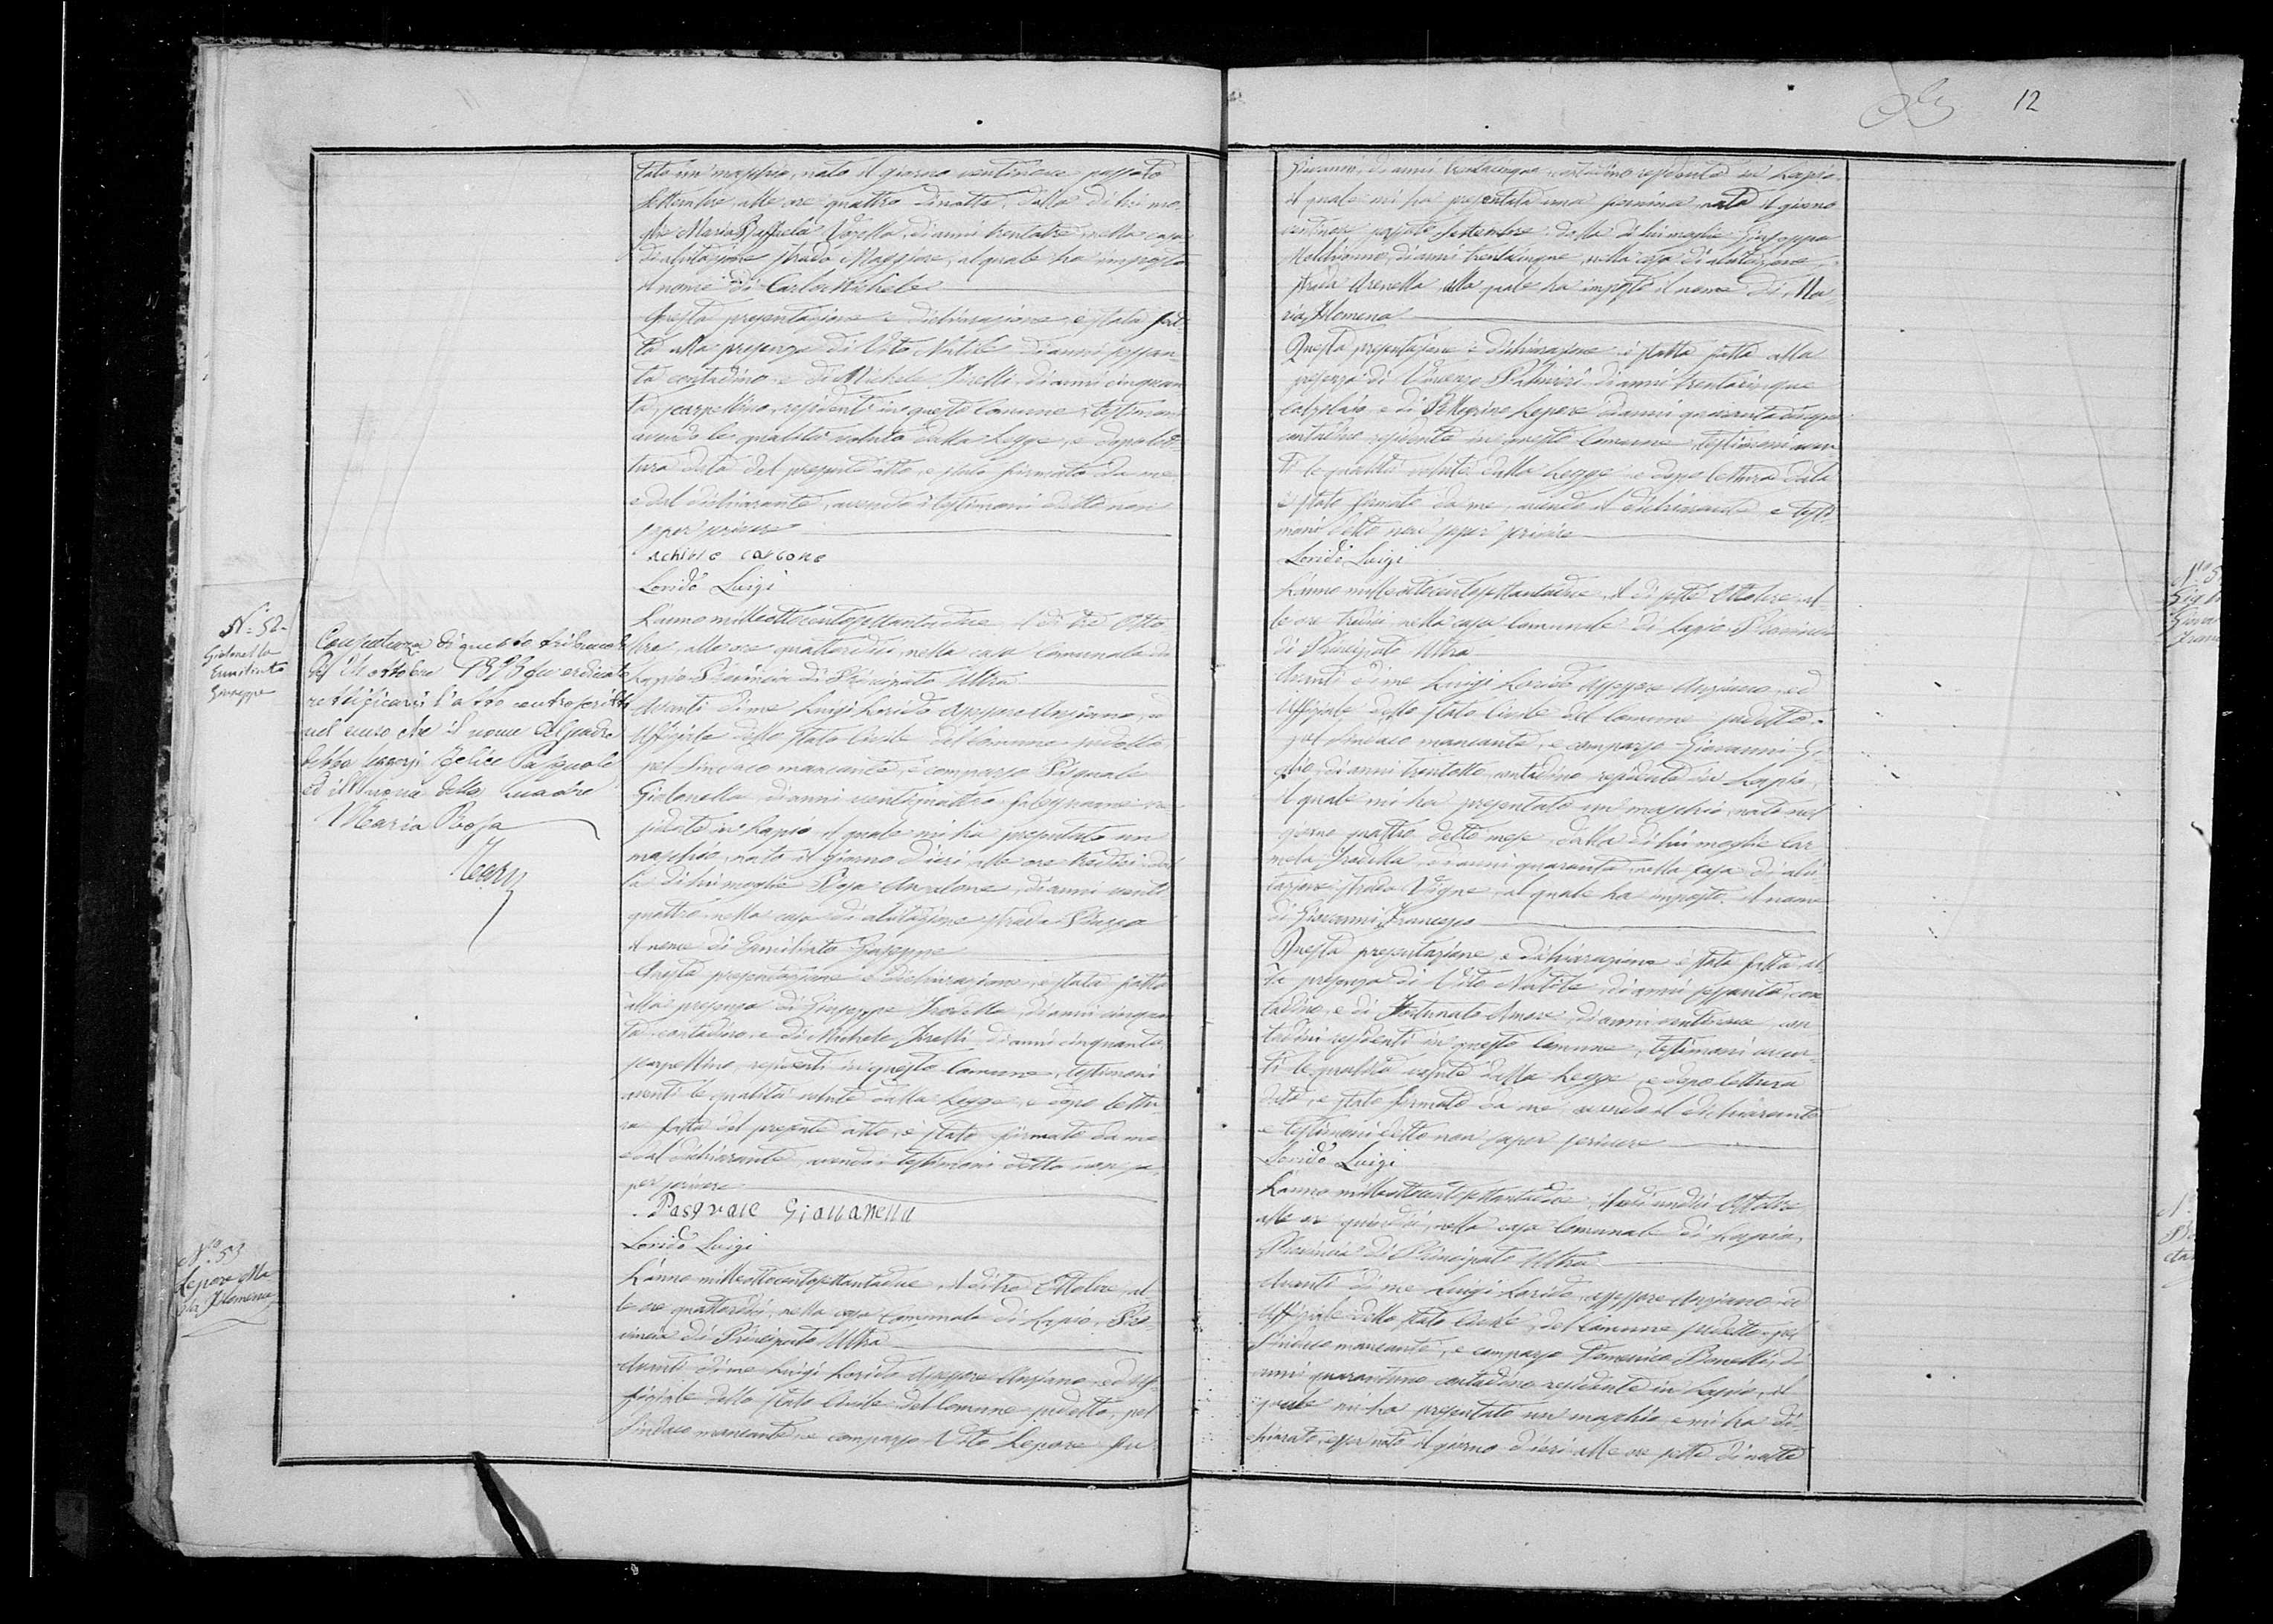 12
tato un maschio, nato il giorno ventinove passato
Settembre, alle ore quattro di notte, dalla di lui mo-
glie Maria Raffaela, di anni trentatre, nella casa
di abitazione strada Maggiore, al quale ha imposto
il nome di Carlo Michele
Questa presentazione e dichiarazione è stata fat-
ta alla presenza di Vito Natale di anni sessan
ta contadino e di Michele Irelli, di anni cinquan
ta, scarpellino, residenti in questo Comune, testimoni
avendo le qualità volute dalla Legge, e dopo let-
tura data del presente atto, è stato firmato da me
e dal dichiarante, avendo i testimoni detto non
saper scrivere
achille carbone
Lorido Luigi
N.° 52
Giolonella
Giuseppe
L'anno milleottocentosettantadue, il dì tre Otto-
bre, alle ore quattordici, nella casa Comunale di
Lapio Provincia di Principato Ultra
Avanti di me Luigi Lorido Assessore Anziano, ed
Uffiziale dello Stato Civile del Comune sudetto,
pel Sindaco mancante, è comparso Pasquale
Giolonella, di anni ventiquattro, falegname re-
sidente in Lapio, il quale mi ha presentato un
maschio, nato il giorno d'ieri, alle ore tredici dal
la di lui moglie Rosa, di anni venti
quattro, nella casa di abitazione strada
il nome di Giuseppe
Questa presentazione e dichiarazione, è stata fatta
alla presenza di Giuseppe, di anni cinquan
ta, contadino, e di Michele Irelli di anni cinquanta
scarpellino, residenti in questo Comune, testimoni
aventi le qualità volute dalla Legge, e dopo lettu-
ra fatta del presente atto, è stato firmato da me
e dal dichiarante, avendo i testimoni detto non sa-
per scrivere
Pasquale Giallanella
Lorido Luigi
di questo tribunale
del ottobre 1873 fu ordinato
rettificarsi l'atto controscritto
nel senso che il nome del padre
debba leggersi Felice Pasquale
ed il nome della madre
Maria Rosa
N.° 53
Lepore Ma
ria Filomena
L'anno milleottocentosettantadue, il dì tre Ottobre, al
le ore quattordici, nella casa Comunale di Lapio, Pro-
vincia di Principato Ultra
Avanti di me Luigi Lorido Assessore Anziano, ed Uf-
fiziale dello Stato Civile del Comune sudetto, pel
Sindaco mancante, è comparso Vito Lepore fu
Giovanni, di anni trentacinque, contadino residente in Lapio,
il quale mi ha presentata una femmina nata il giorno
ventinove passato Settembre dalla di lui moglie Giuseppa
di anni trentacinque, nella casa di abitazione
strada Arenella alla quale ha imposto il nome di Ma
ria Filomena
Questa presentazione e dichiarazione è stata fatta alla
presenza di Vincenzo di anni trentacinque
calzolaio, e di Pellegrino Lepore di anni quaranta
contadino residente in questo Comune, testimoni aven
ti le qualità volute dalla Legge, e dopo lettura data
è stato firmato da me, avendo il dichiarante e testi
moni detto non saper scrivere
Lorido Luigi
L'anno milleottocentosettantadue, il dì sette Ottobre, al-
le ore tredici, nella casa Comunale di Lapio Provincia
di Principato Ultra
Avanti di me Luigi Lorido Assessore Anziano, ed
Uffiziale dello Stato Civile del Comune sudetto,
pel Sindaco mancante, è comparso Giovanni Gi-
glio, di anni trentotto, contadino residente in Lapio,
il quale mi ha presentato un maschio, nato nel
giorno quattro detto mese, dalla di lui moglie Car
mela, di anni quaranta, nella casa di abi-
tazione strada Vigne, al quale ha imposto il nome
di Giovanni Francesco
Questa presentazione e dichiarazione è stata fatta al-
la presenza di Vito Natale, di anni sessanta, con
tadino, e di Fortunato Amore, di anni, con
tadini residenti in questo Comune, testimoni aven-
ti le qualità volute dalla Legge, e dopo lettura
data, è stato firmato da me, avendo il dichiarante
e testimoni detto non saper scrivere
Lorido Luigi
L'anno milleottocentosettantadue, il dì undici Ottobre
alle ore quindici, nella casa Comunale di Lapio,
Provincia di Principato Ultra
Avanti di me Luigi Lorido, assessore Anziano, ed
Uffiziale dello Stato Civile, del Comune sudetto, pel
Sindaco mancante, è comparso Domenico, di
anni quarantuno contadino residente in Lapio, il
quale mi ha presentato un maschio, e mi ha di-
chiarato, esser nato il giorno d'ieri alle ore sette di notte